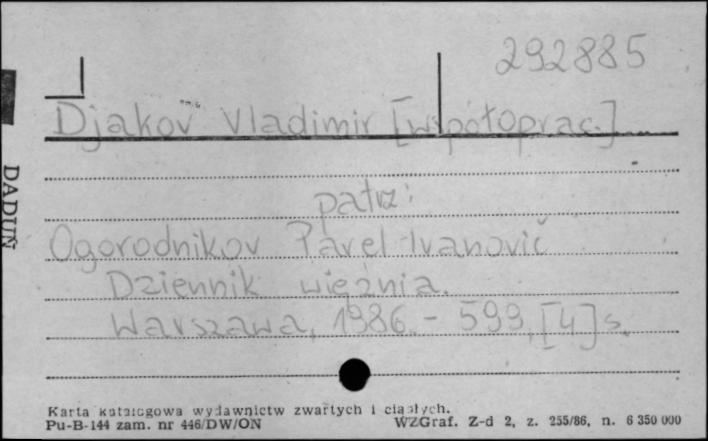 292885
Djakov Vladimir [współoprac.]
patrz:
Ogorodnikov Pavel Ivanovič
Dziennik więźnia.
Warszawa, 1986. - 599, [4] s.
DADUŃ
Karta katalogowa wydawnictw zwartych i ciągłych.
Pu-B-144 zam. nr 446/DW/ON WZGraf. Z-d 2, z. 255/86, n. 6 350 000